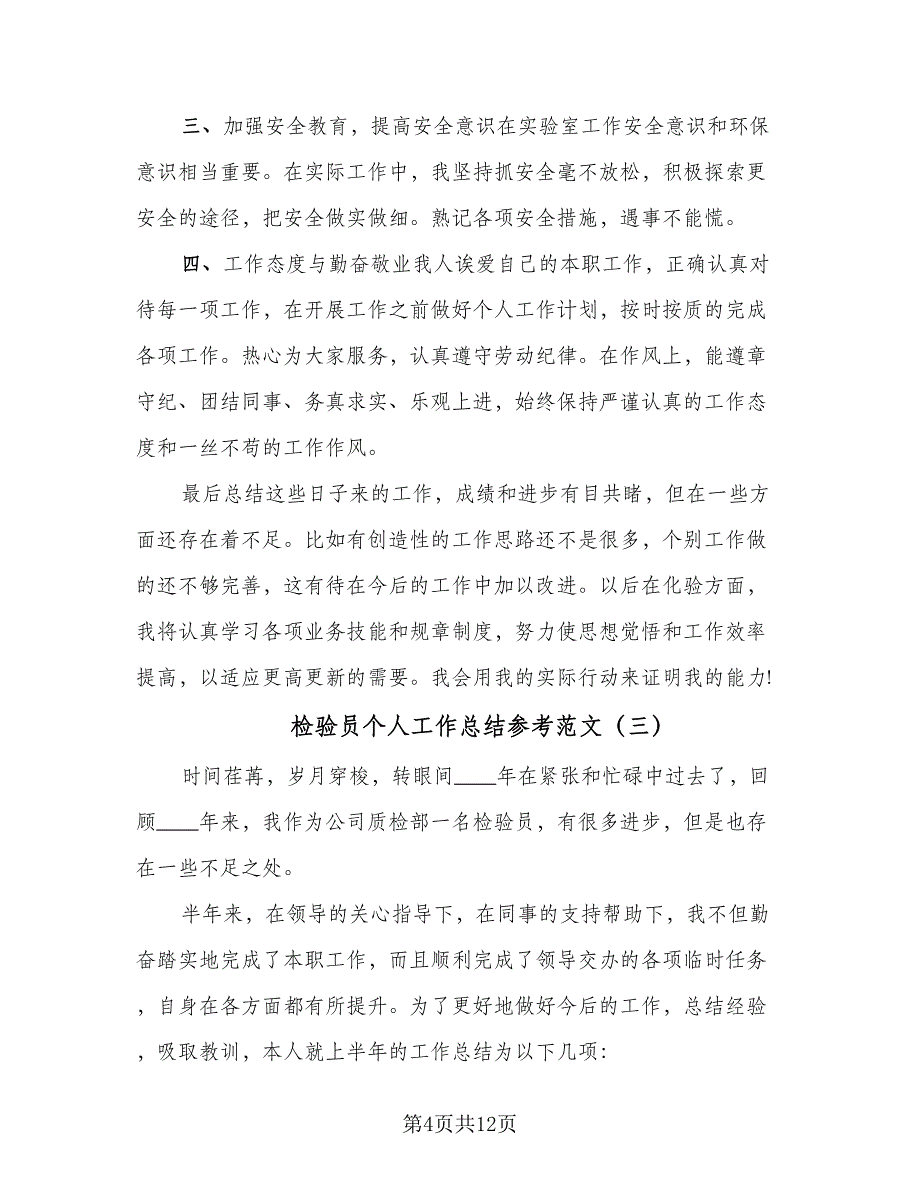 三、加强安全教育，提高安全意识在实验室工作安全意识和环保
意识相当重要。在实际工作中，我坚持抓安全毫不放松，积极探索更
安全的途径，把安全做实做细。熟记各项安全措施，遇事不能慌。
四、工作态度与勤奋敬业我人诶爱自己的本职工作，正确认真对
待每一项工作，在开展工作之前做好个人工作计划，按时按质的完成
各项工作。热心为大家服务，认真遵守劳动纪律。在作风上，能遵章
守纪、团结同事、务真求实、乐观上进，始终保持严谨认真的工作态
度和一丝不苟的工作作风。
最后总结这些日子来的工作，成绩和进步有目共睹，但在一些方
面还存在着不足。比如有创造性的工作思路还不是很多，个别工作做
的还不够完善，这有待在今后的工作中加以改进。以后在化验方面，
我将认真学习各项业务技能和规章制度，努力使思想觉悟和工作效率
提高，以适应更高更新的需要。我会用我的实际行动来证明我的能力!
检验员个人工作总结参考范文（三）
时间荏苒，岁月穿梭，转眼间____年在紧张和忙碌中过去了，回
顾____年来，我作为公司质检部一名检验员，有很多进步，但是也存
在一些不足之处。
半年来，在领导的关心指导下，在同事的支持帮助下，我不但勤
奋踏实地完成了本职工作，而且顺利完成了领导交办的各项临时任务
，自身在各方面都有所提升。为了更好地做好今后的工作，总结经验
，吸取教训，本人就上半年的工作总结为以下几项：
第4页共12页